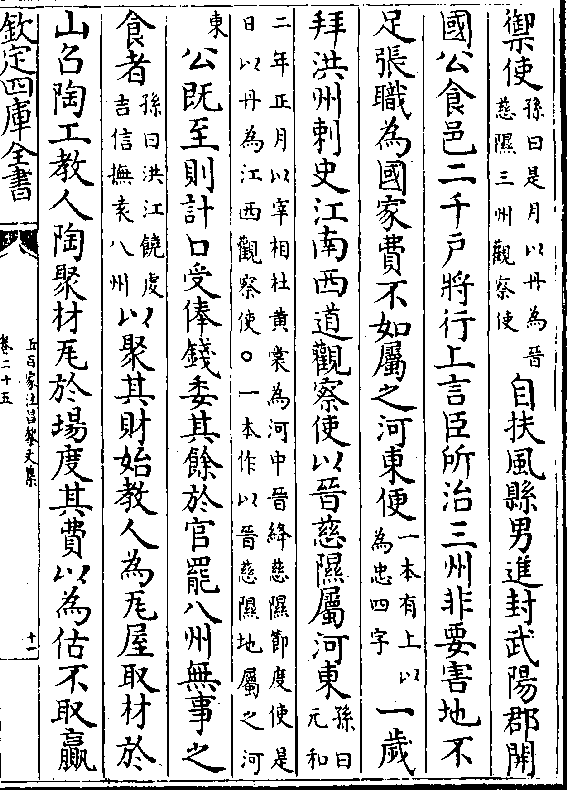 禦使孫曰是月以丹為晉
慈隰三州觀察使自扶風縣男進封武陽郡開
國公食邑二千戶將行上言臣所治三州非要害地不
足張職為國家費不如屬之河東便一本有上以
為忠四字一歲
拜洪州刺史江南西道觀察使以晉慈隰屬河東孫曰
元和
二年正月以宰相杜黃裳為河中晉絳慈隰節度使是
日以丹為江西觀察使。一本作以晉慈隰地屬之河
東公既至則計口受俸錢委其餘於官罷八州無事之
食者孫曰洪江饒虔
吉信撫袁八州以聚其財始教人為瓦屋取材於
山召陶工教人陶聚材瓦於場度其費以為估不取贏
欽定四庫全書
五百家注昌黎文集
卷二十五
十一